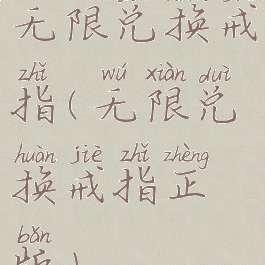 无限兑换戒
zhǐ wú xiàn duì
指(无限兑
huàn jiè zhǐ zhèng
换戒指正
bǎn
版)